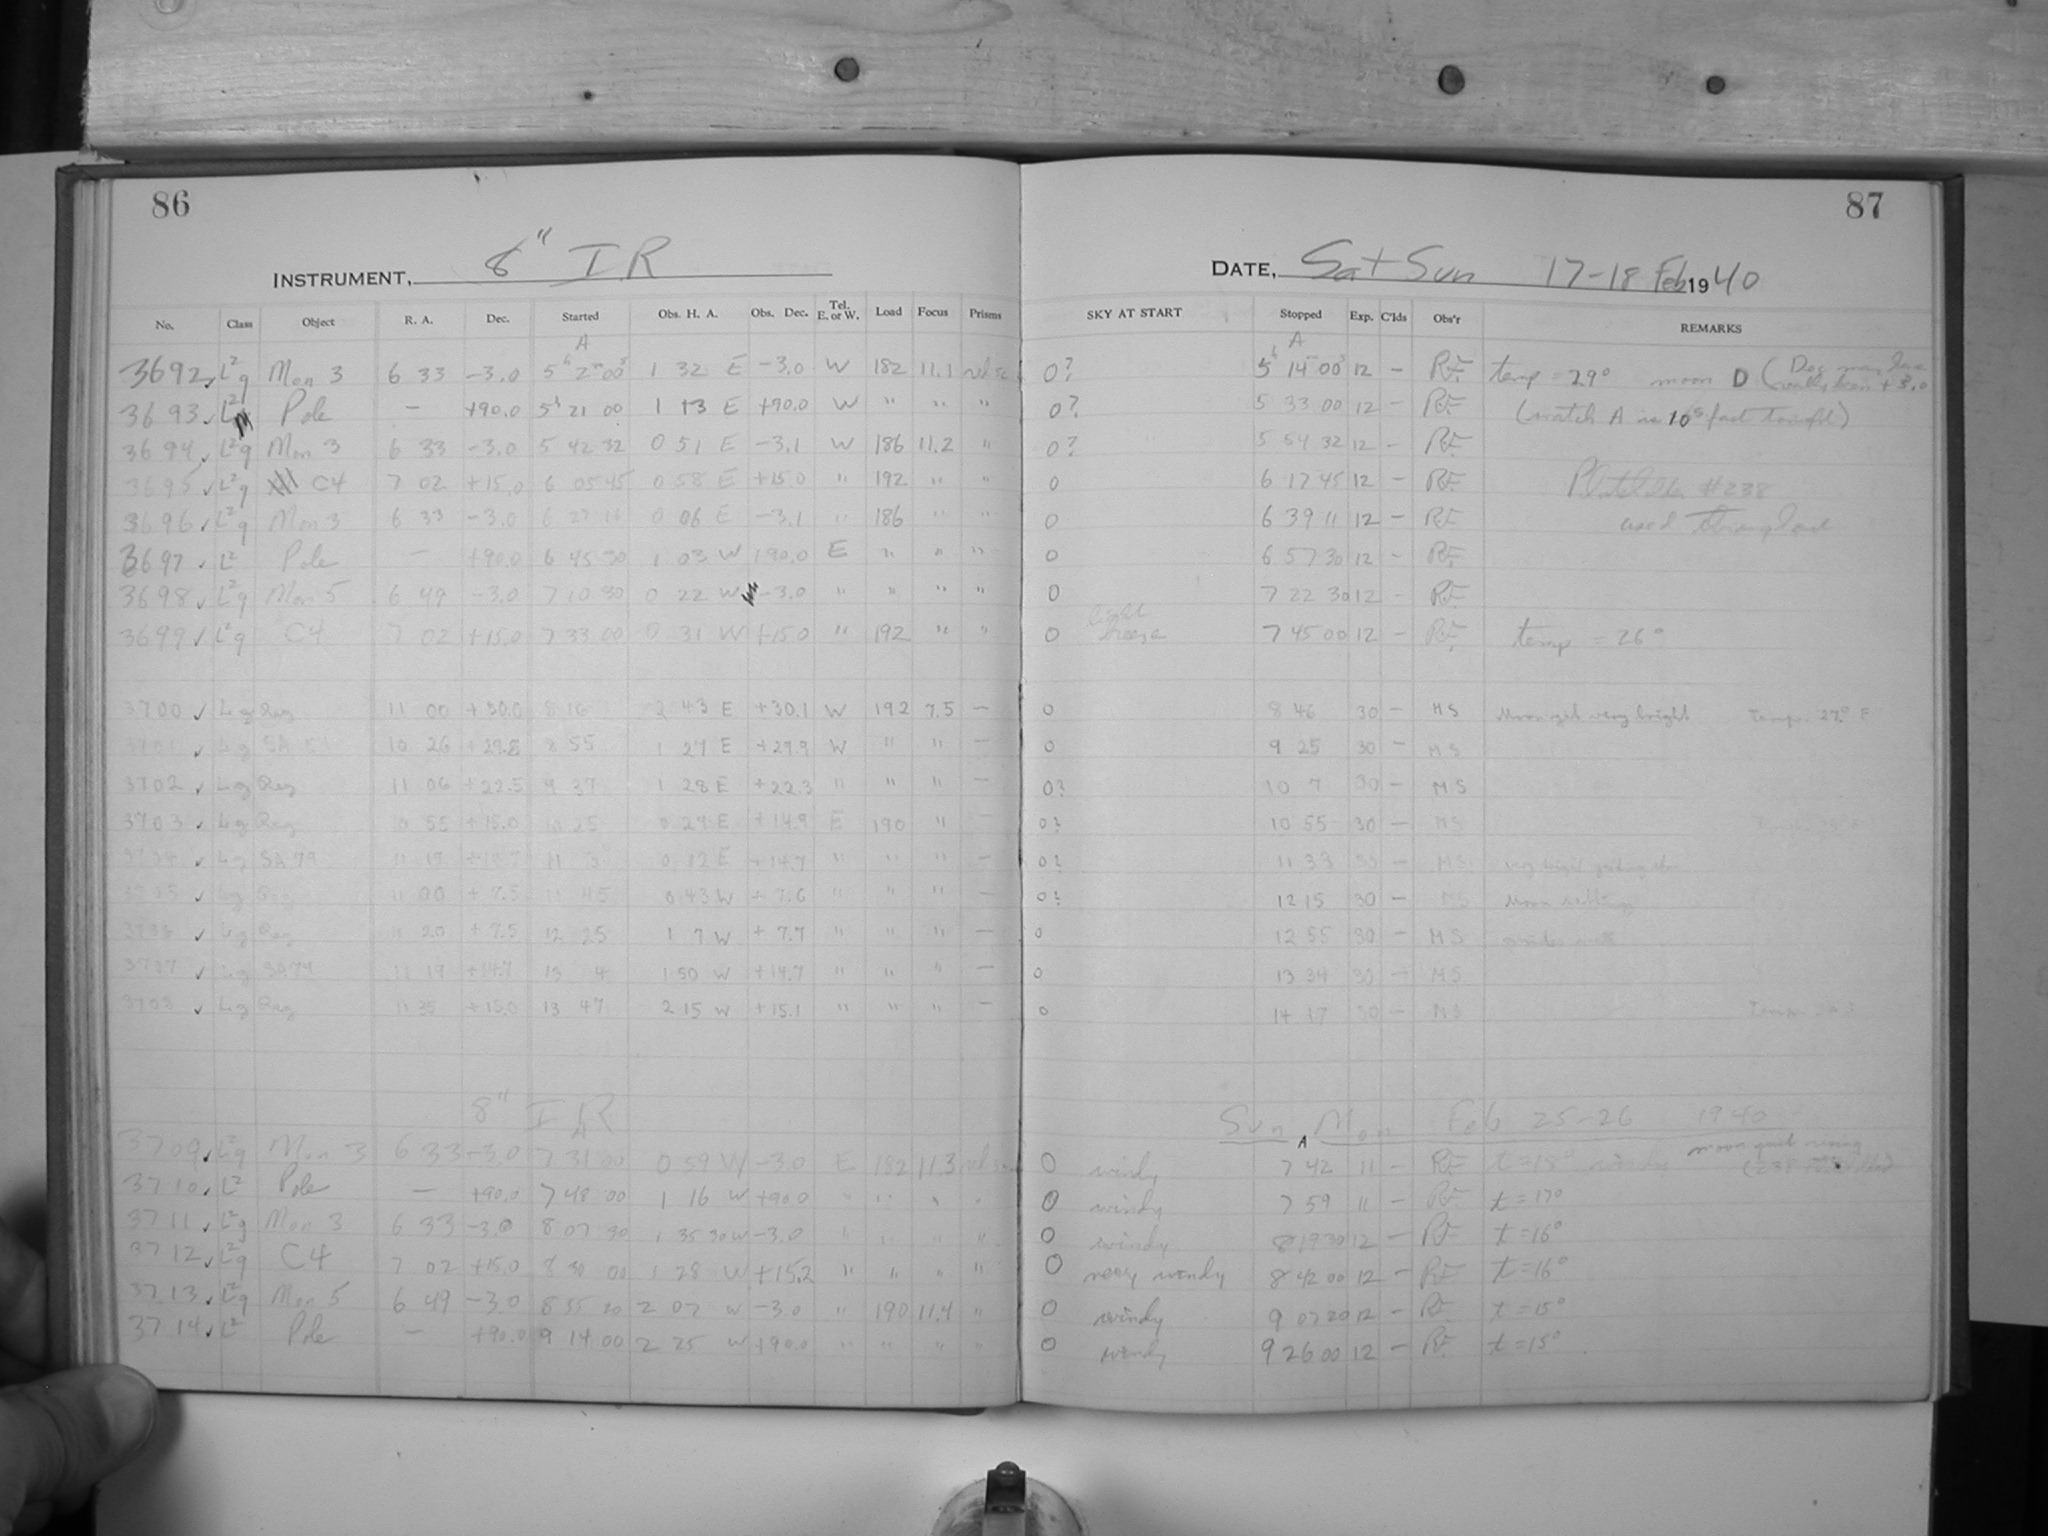 86
INSTRUMENT, 8" IR
No. Class Object R. A. Dec. Started Obs. H. A. Obs. Dec. Tel. E. or W. Load Focus Prisms
A
3692 L²g Mon 3 6 33 -3.0 5ʰ 2ᵐ 00ˢ 1 32 E -3.0 W 182 11.1
3693 Pole — +90.0 5ʰ 21 00 1 13 E +90.0 W " " "
3694 L²g Mon 3 6 33 -3.0 5 42 32 0 51 E -3.1 W 186 11.2 "
3695 L²g C4 7 02 +15.0 6 05 45 0 58 E +15.0 " 192 " "
3696 L²g Mon 3 6 33 -3.0 6 27 11 0 06 E -3.1 " 186 " "
3697 L² Pole — +90.0 6 45 30 1 03 W +90.0 E " " "
3698 L²g Mon 5 6 49 -3.0 7 10 30 0 22 W -3.0 " " " "
3699 L²g C4 7 02 +15.0 7 33 00 0 31 W +15.0 " 192 " "
3700 Lg Reg 11 00 +30.0 8 16 2 43 E +30.1 W 192 7.5 —
3701 Lg SA 10 26 +29.8 8 55 1 27 E +29.9 W " " —
3702 Lg Reg 11 06 +22.5 9 37 1 28 E +22.3 " " " —
3703 Lg Reg 10 55 +15.0 10 25 0 29 E +14.9 E 190 " —
3704 Lg SA 79 11 19 +14.7 11 3 0 12 E +14.7 " " " —
3705 Lg Reg 11 00 +7.5 11 45 0 43 W +7.6 " " " —
3706 Lg Reg 11 20 +7.5 12 25 1 7 W +7.7 " " " —
3707 Lg SA 79 11 19 +14.7 13 4 1 50 W +14.7 " " " —
3708 Lg Reg 11 35 +15.0 13 47 2 15 W +15.1 " " " —
8" IR
A
3709 L²g Mon 3 6 33 -3.0 7 31 00 0 59 W -3.0 E 182 11.3
3710 L² Pole — +90.0 7 48 00 1 16 W +90.0 " " " "
3711 L²g Mon 3 6 33 -3.0 8 07 30 1 35 30 W -3.0 " " " "
3712 L²g C4 7 02 +15.0 8 30 00 1 28 W +15.2 " " " "
3713 L²g Mon 5 6 49 -3.0 8 55 20 2 07 W -3.0 " 190 11.4 "
3714 L² Pole — +90.0 9 14 00 2 25 W +90.0 " " " "
87
DATE, Sat Sun 17-18 Feb 1940
SKY AT START Stopped Exp. C'lds Obs'r REMARKS
A
0? 5ʰ 14ᵐ 00ˢ 12 — RF. temp = 29° moon D (Dec may have really been +3.0
0? 5 33 00 12 — RF. (watch A is 10ˢ fast tonight)
0? 5 54 32 12 — RF.
0 6 17 45 12 — RF. Plateholder #238
0 6 39 11 12 — RF used throughout
0 6 57 30 12 — RF.
0 7 22 30 12 - RF.
0 light breeze 7 45 00 12 — RF. temp = 26°
0 8 46 30 — MS Moon yet very bright Temp. 27° F
0 9 25 30 — MS
0? 10 7 30 — MS
0? 10 55 30 — MS
0? 11 33 30 — MS
0? 12 15 30 — MS Moon setting
0 12 55 30 — MS
0 13 34 30 — MS
0 14 17 30 — MS
Sun Mon Feb 25-26 1940
A
0 windy 7 42 11 — RF t=18° windy moon just rising
0 windy 7 59 11 — RF t=17°
0 windy 8 19 30 12 — RF t=16°
0 very windy 8 42 00 12 — RF t=16°
0 windy 9 07 20 12 — RF t=15°
0 windy 9 26 00 12 — RF t=15°